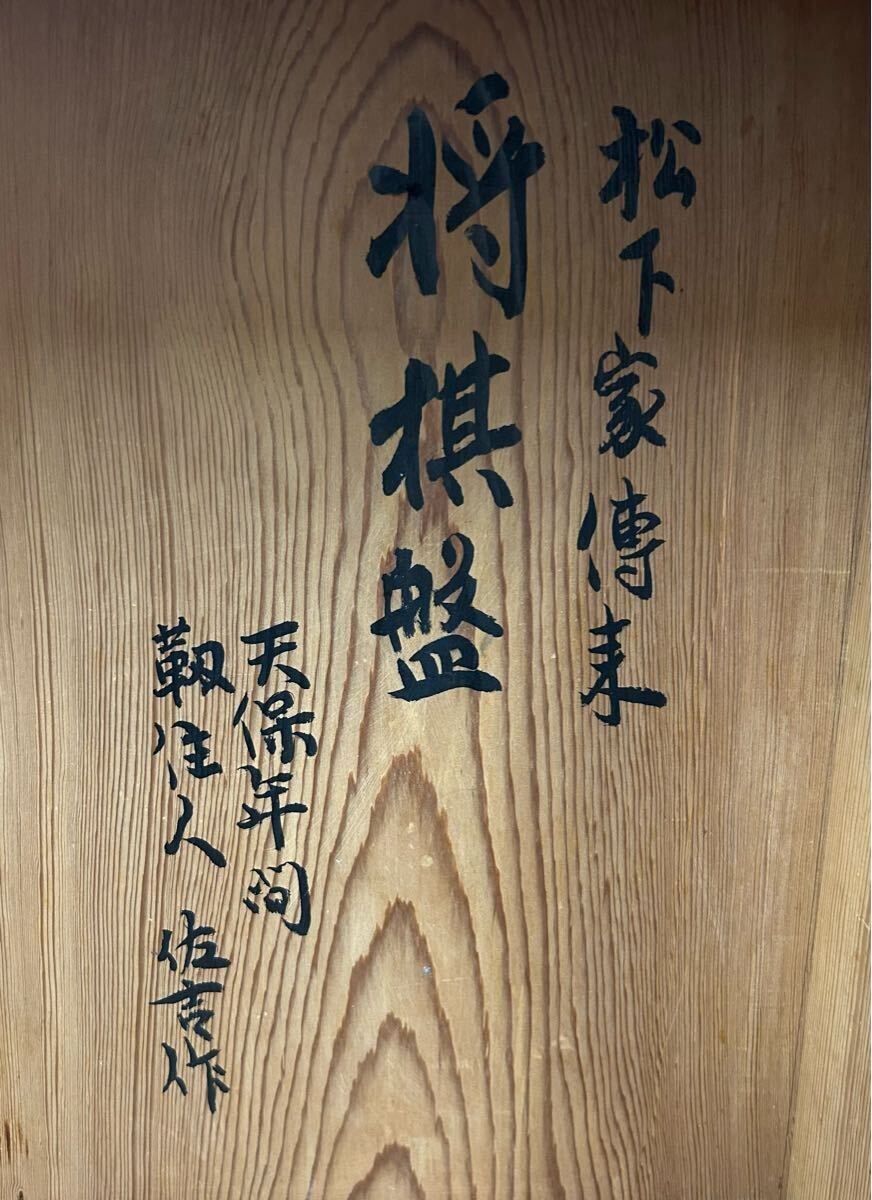 松下家傳来
将棋盤
天保年間
靱住人 佐吉作